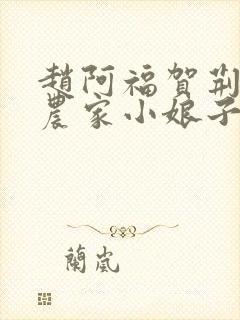 趙阿福賀荆
農家小娘子
蘭嵐